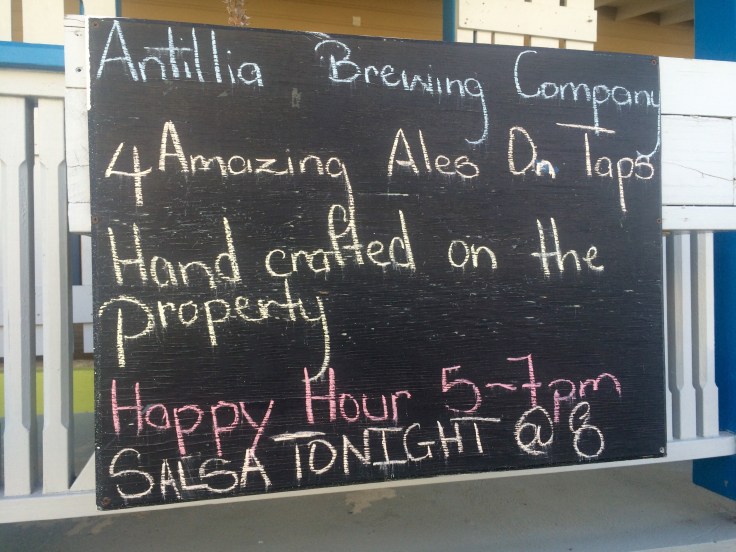 Antillia Brewing Company
4 Amazing Ales On Taps
Hand crafted on the
property
Happy Hour 5-7pm
SALSA TONIGHT @ 8